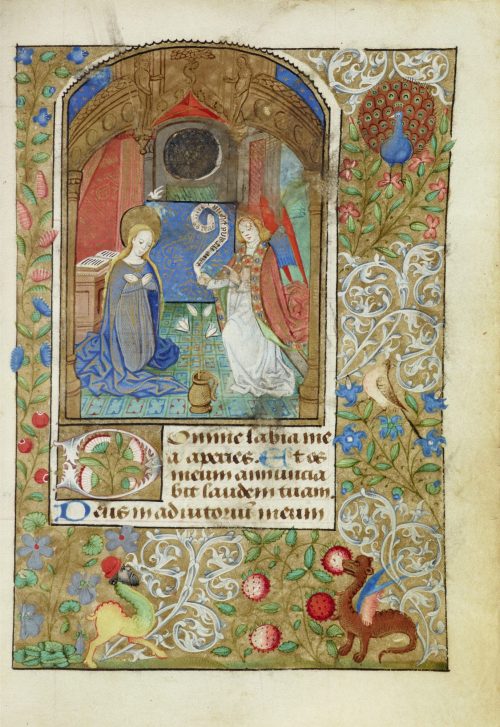 Domine labia me
a aperies. Et os
meum annuncia
bit laudem tuam.
Deus in adiutoriū meum